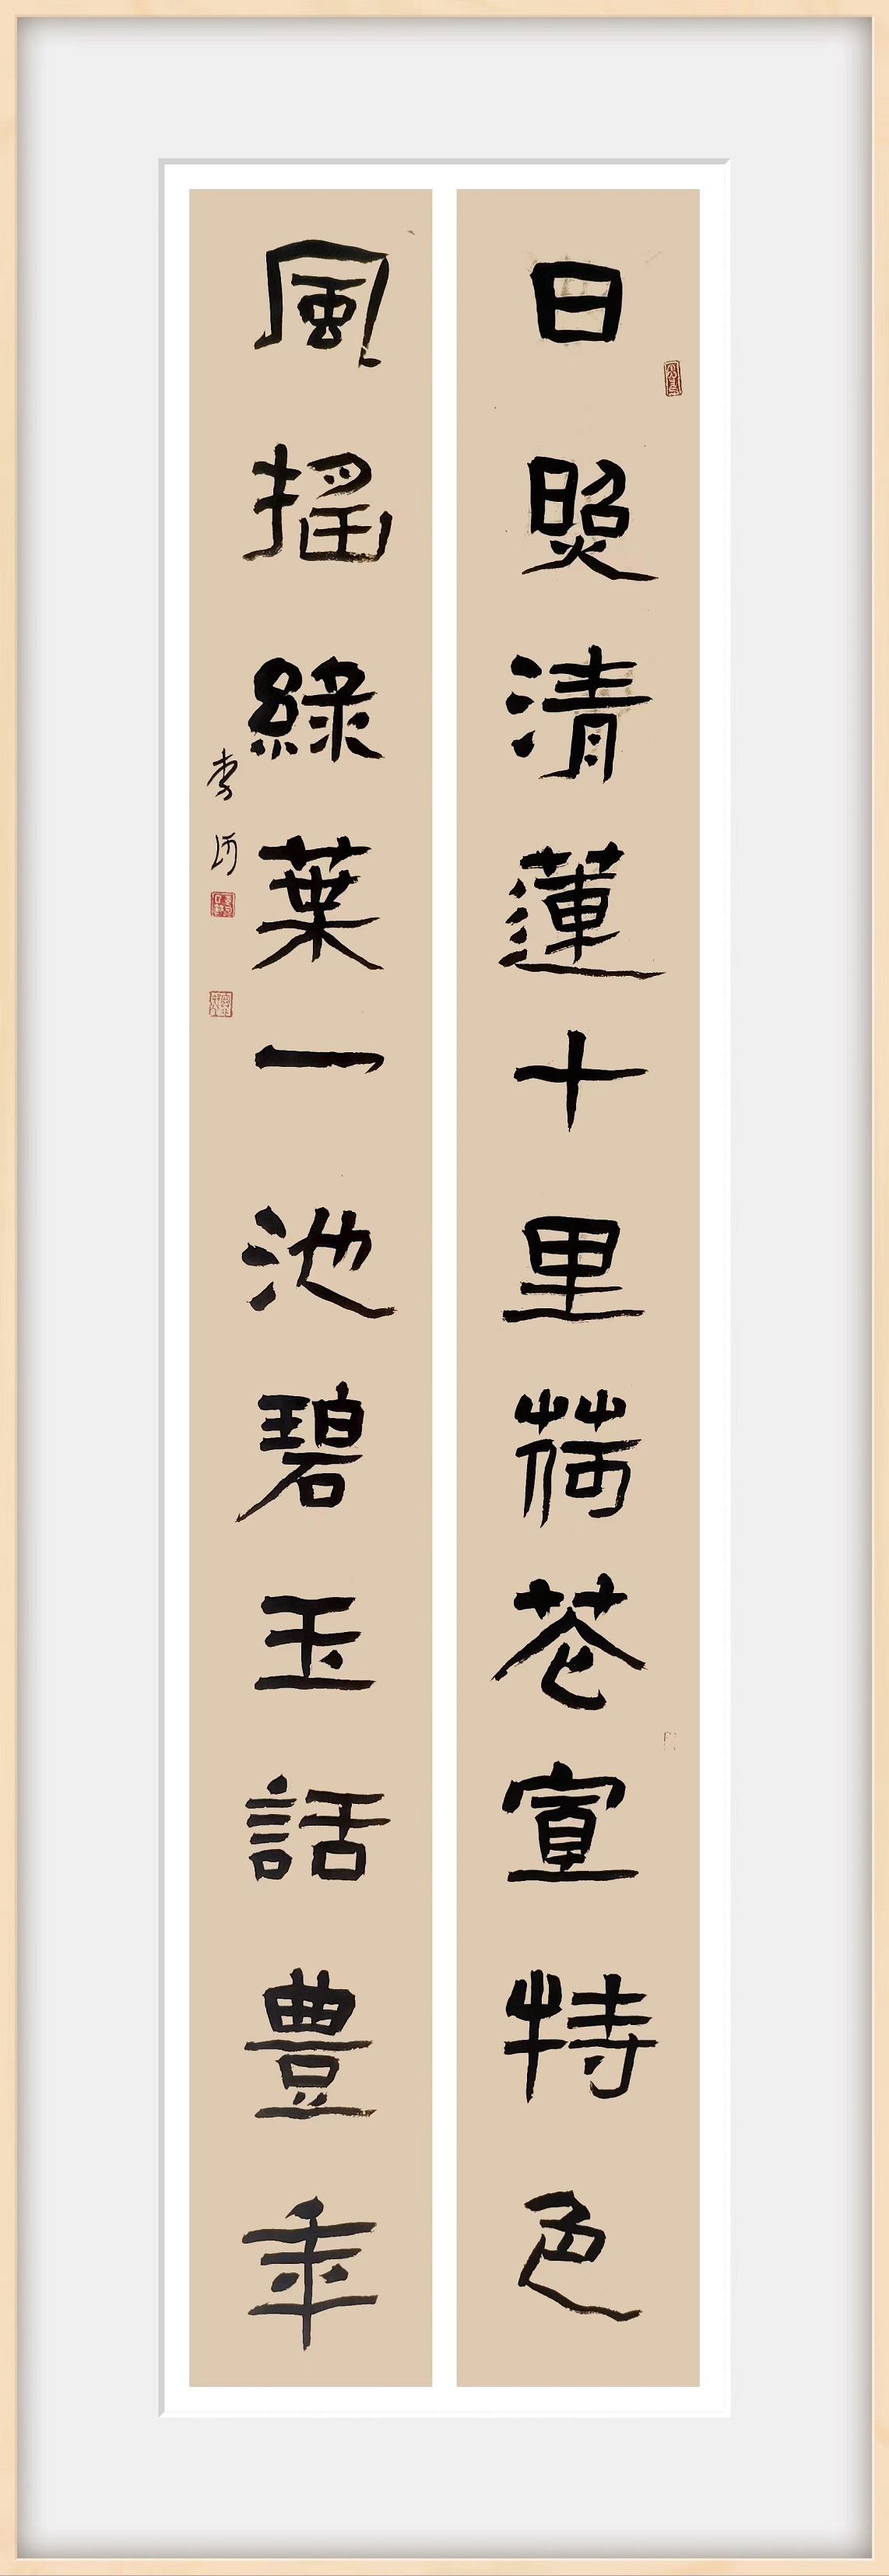 日照清蓮十里荷花宣特色
風搖綠葉一池碧玉話豐年
李河